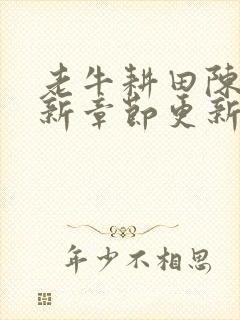 老牛耕田陈
新章节更新
年少不相思